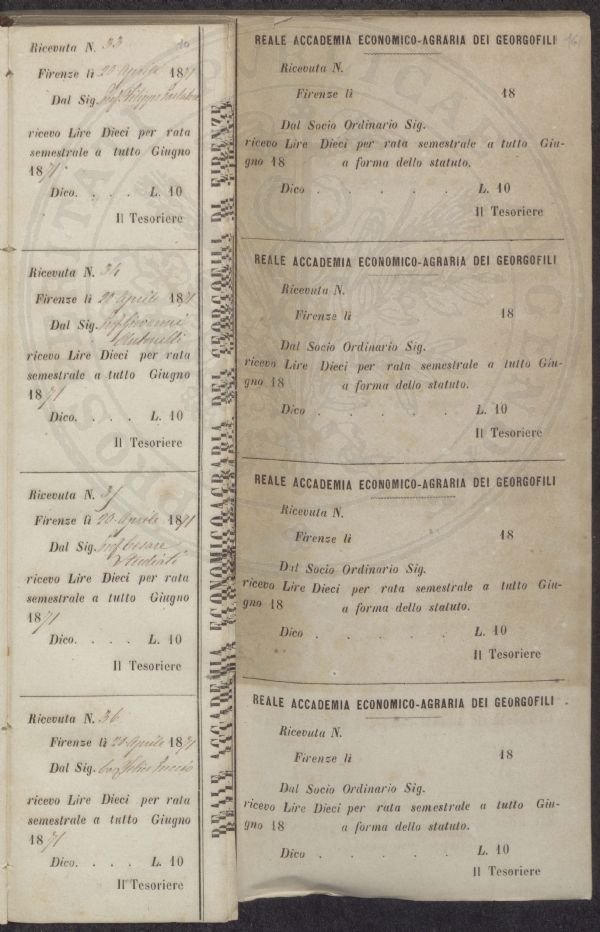 10
Ricevuta N. 33
Firenze lì 20 Aprile 1871
Dal Sig. Filippo Parlatore
ricevo Lire Dieci per rata
semestrale a tutto Giugno
1871
Dico. . . . L. 10
Il Tesoriere
Ricevuta N. 34
Firenze lì 20 Aprile 1871
Dal Sig. Giovanni
Antonelli
ricevo Lire Dieci per rata
semestrale a tutto Giugno
1871
Dico. . . . L. 10
Il Tesoriere
Ricevuta N. 35
Firenze lì 20 Aprile 1871
Dal Sig. Cesare
Studiati
ricevo Lire Dieci per rata
semestrale a tutto Giugno
1871
Dico. . . . L. 10
Il Tesoriere
Ricevuta N. 36
Firenze lì 20 Aprile 1871
Dal Sig.
ricevo Lire Dieci per rata
semestrale a tutto Giugno
1871
Dico. . . . L. 10
Il Tesoriere
REALE ACCADEMIA ECONOMICO-AGRARIA DEI GEORGOFILI DI FIRENZE
REALE ACCADEMIA ECONOMICO-AGRARIA DEI GEORGOFILI
Ricevuta N.
Firenze lì 18
Dal Socio Ordinario Sig.
ricevo Lire Dieci per rata semestrale a tutto Giu-
gno 18 a forma dello statuto.
Dico . . . . . L. 10
Il Tesoriere
REALE ACCADEMIA ECONOMICO-AGRARIA DEI GEORGOFILI
Ricevuta N.
Firenze lì 18
Dal Socio Ordinario Sig.
ricevo Lire Dieci per rata semestrale a tutto Giu-
gno 18 a forma dello statuto.
Dico . . . . . L. 10
Il Tesoriere
REALE ACCADEMIA ECONOMICO-AGRARIA DEI GEORGOFILI
Ricevuta N.
Firenze lì 18
Dal Socio Ordinario Sig.
ricevo Lire Dieci per rata semestrale a tutto Giu-
gno 18 a forma dello statuto.
Dico . . . . . L. 10
Il Tesoriere
REALE ACCADEMIA ECONOMICO-AGRARIA DEI GEORGOFILI
Ricevuta N.
Firenze lì 18
Dal Socio Ordinario Sig.
ricevo Lire Dieci per rata semestrale a tutto Giu-
gno 18 a forma dello statuto.
Dico . . . . . L. 10
Il Tesoriere